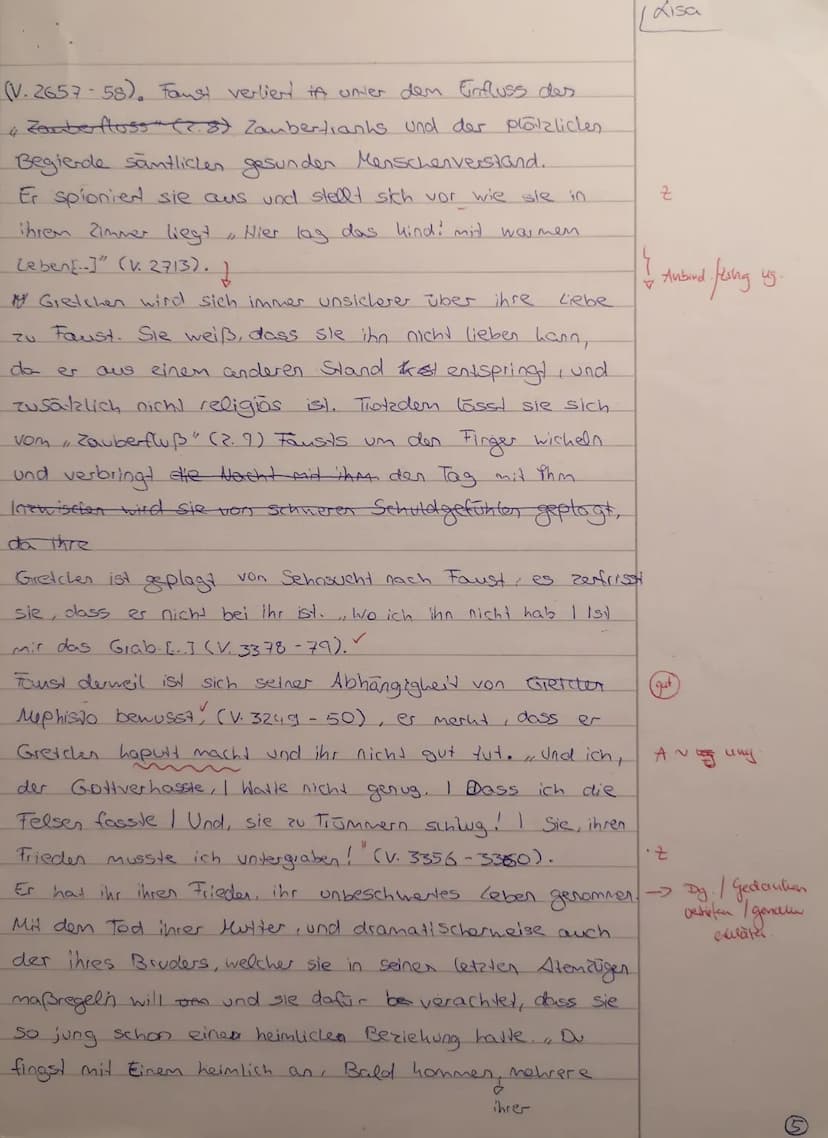 Lisa
(V. 2657-58). Faust verliert unter dem Einfluss des
„Zauberfloss" (Z. 8) Zaubertranks und der plötzlichen
Begierde sämtlichen gesunden Menschenverstand.
Er spioniert sie aus und stellt sich vor wie sie in
Z
ihrem Zimmer liegt „Hier lag das Kind! mit warmen
Leben[..]" (V. 2713).
Anbind.
Gretchen wird sich immer unsicherer über ihre Liebe
zu Faust. Sie weiß, dass sie ihn nicht lieben kann,
da er aus einem anderen Stand entspringt, und
zusätzlich nicht religiös ist. Trotzdem lässt sie sich
vom „Zauberfluß" (Z. 9) Fausts um den Finger wickeln
und verbringt die Nacht mit ihm den Tag mit ihm
Inzwischen wird sie von schweren Schuldgefühlen geplagt,
da ihre
Gretchen ist geplagt von Sehnsucht nach Faust, es zerfrisst
sie, dass er nicht bei ihr ist. „Wo ich ihn nicht hab | Ist
mir das Grab.[..] (V. 3378-79).
Faust derweil ist sich seiner Abhängigkeit von Gretchen
gut
Mephisto bewusst, (V. 3249-50), er merkt, dass er
Gretchen kaputt macht und ihr nicht gut tut. „Und ich,
A
der Gottverhasste, | Hatte nicht genug. | Dass ich die
Felsen fasste | Und, sie zu Trümmern schlug! | Sie, ihren
Frieden musste ich untergraben!" (V. 3356-3360).
Z
Er hat ihr ihren Frieden, ihr unbeschwertes Leben genommen.
→ Dg. / Gedanken
/ genau
Mit dem Tod ihrer Mutter, und dramatischerweise auch
der ihres Bruders, welcher sie in seinen letzten Atemzügen
maßregeln will und sie dafür verachtet, dass sie
so jung schon einer heimlichen Beziehung hatte. „Du
fingst mit Einem heimlich an, Bald kommen, mehrere
ihrer
5